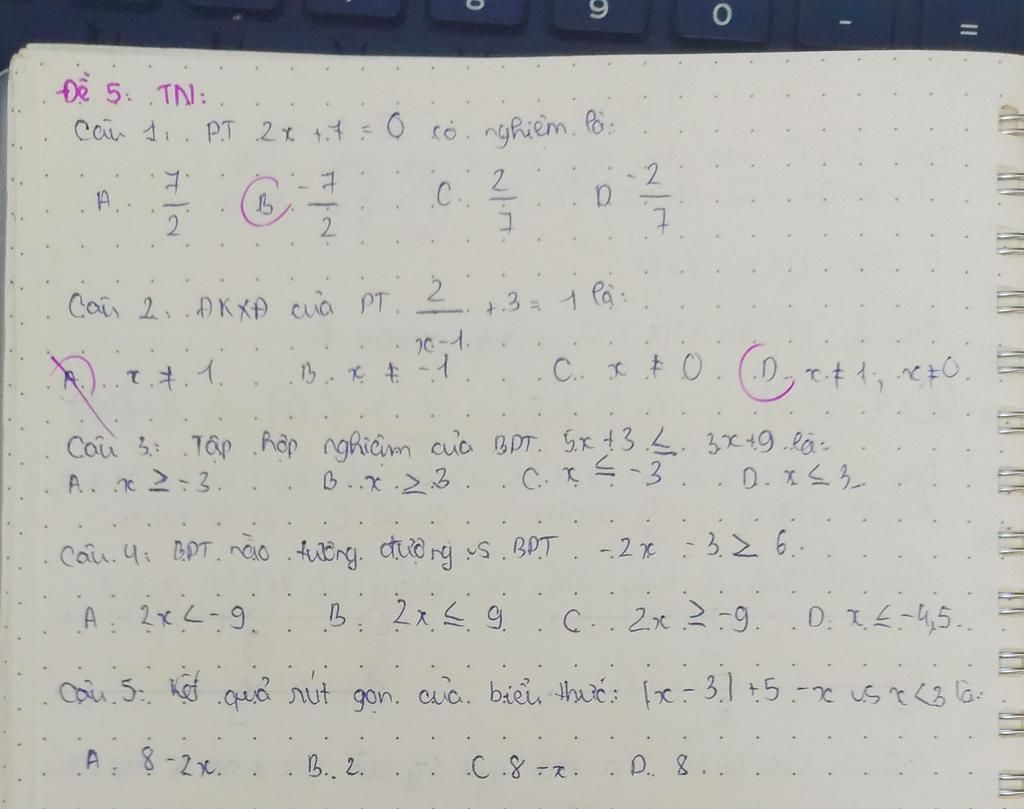 8 9 0 - =
Đề 5: TN:
Câu 1: PT 2x + 7 = 0 có nghiệm là:
A. 7/2 B. -7/2 C. 2/7 D. -2/7
Câu 2: ĐKXĐ của PT 2/(x-1) + 3 = 1 là:
A. x ≠ 1 B. x ≠ -1 C. x ≠ 0 D. x ≠ 1; x ≠ 0
Câu 3: Tập hợp nghiệm của BPT 5x + 3 ≤ 3x + 9 là:
A. x ≥ -3 B. x ≥ 3 C. x ≤ -3 D. x ≤ 3
Câu 4: BPT nào tương đương vs BPT -2x - 3 ≥ 6
A. 2x < -9 B. 2x ≤ 9 C. 2x ≥ -9 D. x ≤ -4,5
Câu 5: Kết quả rút gọn của biểu thức: |x - 3| + 5 - x vs x < 3 là:
A. 8 - 2x B. 2 C. 8 - x D. 8